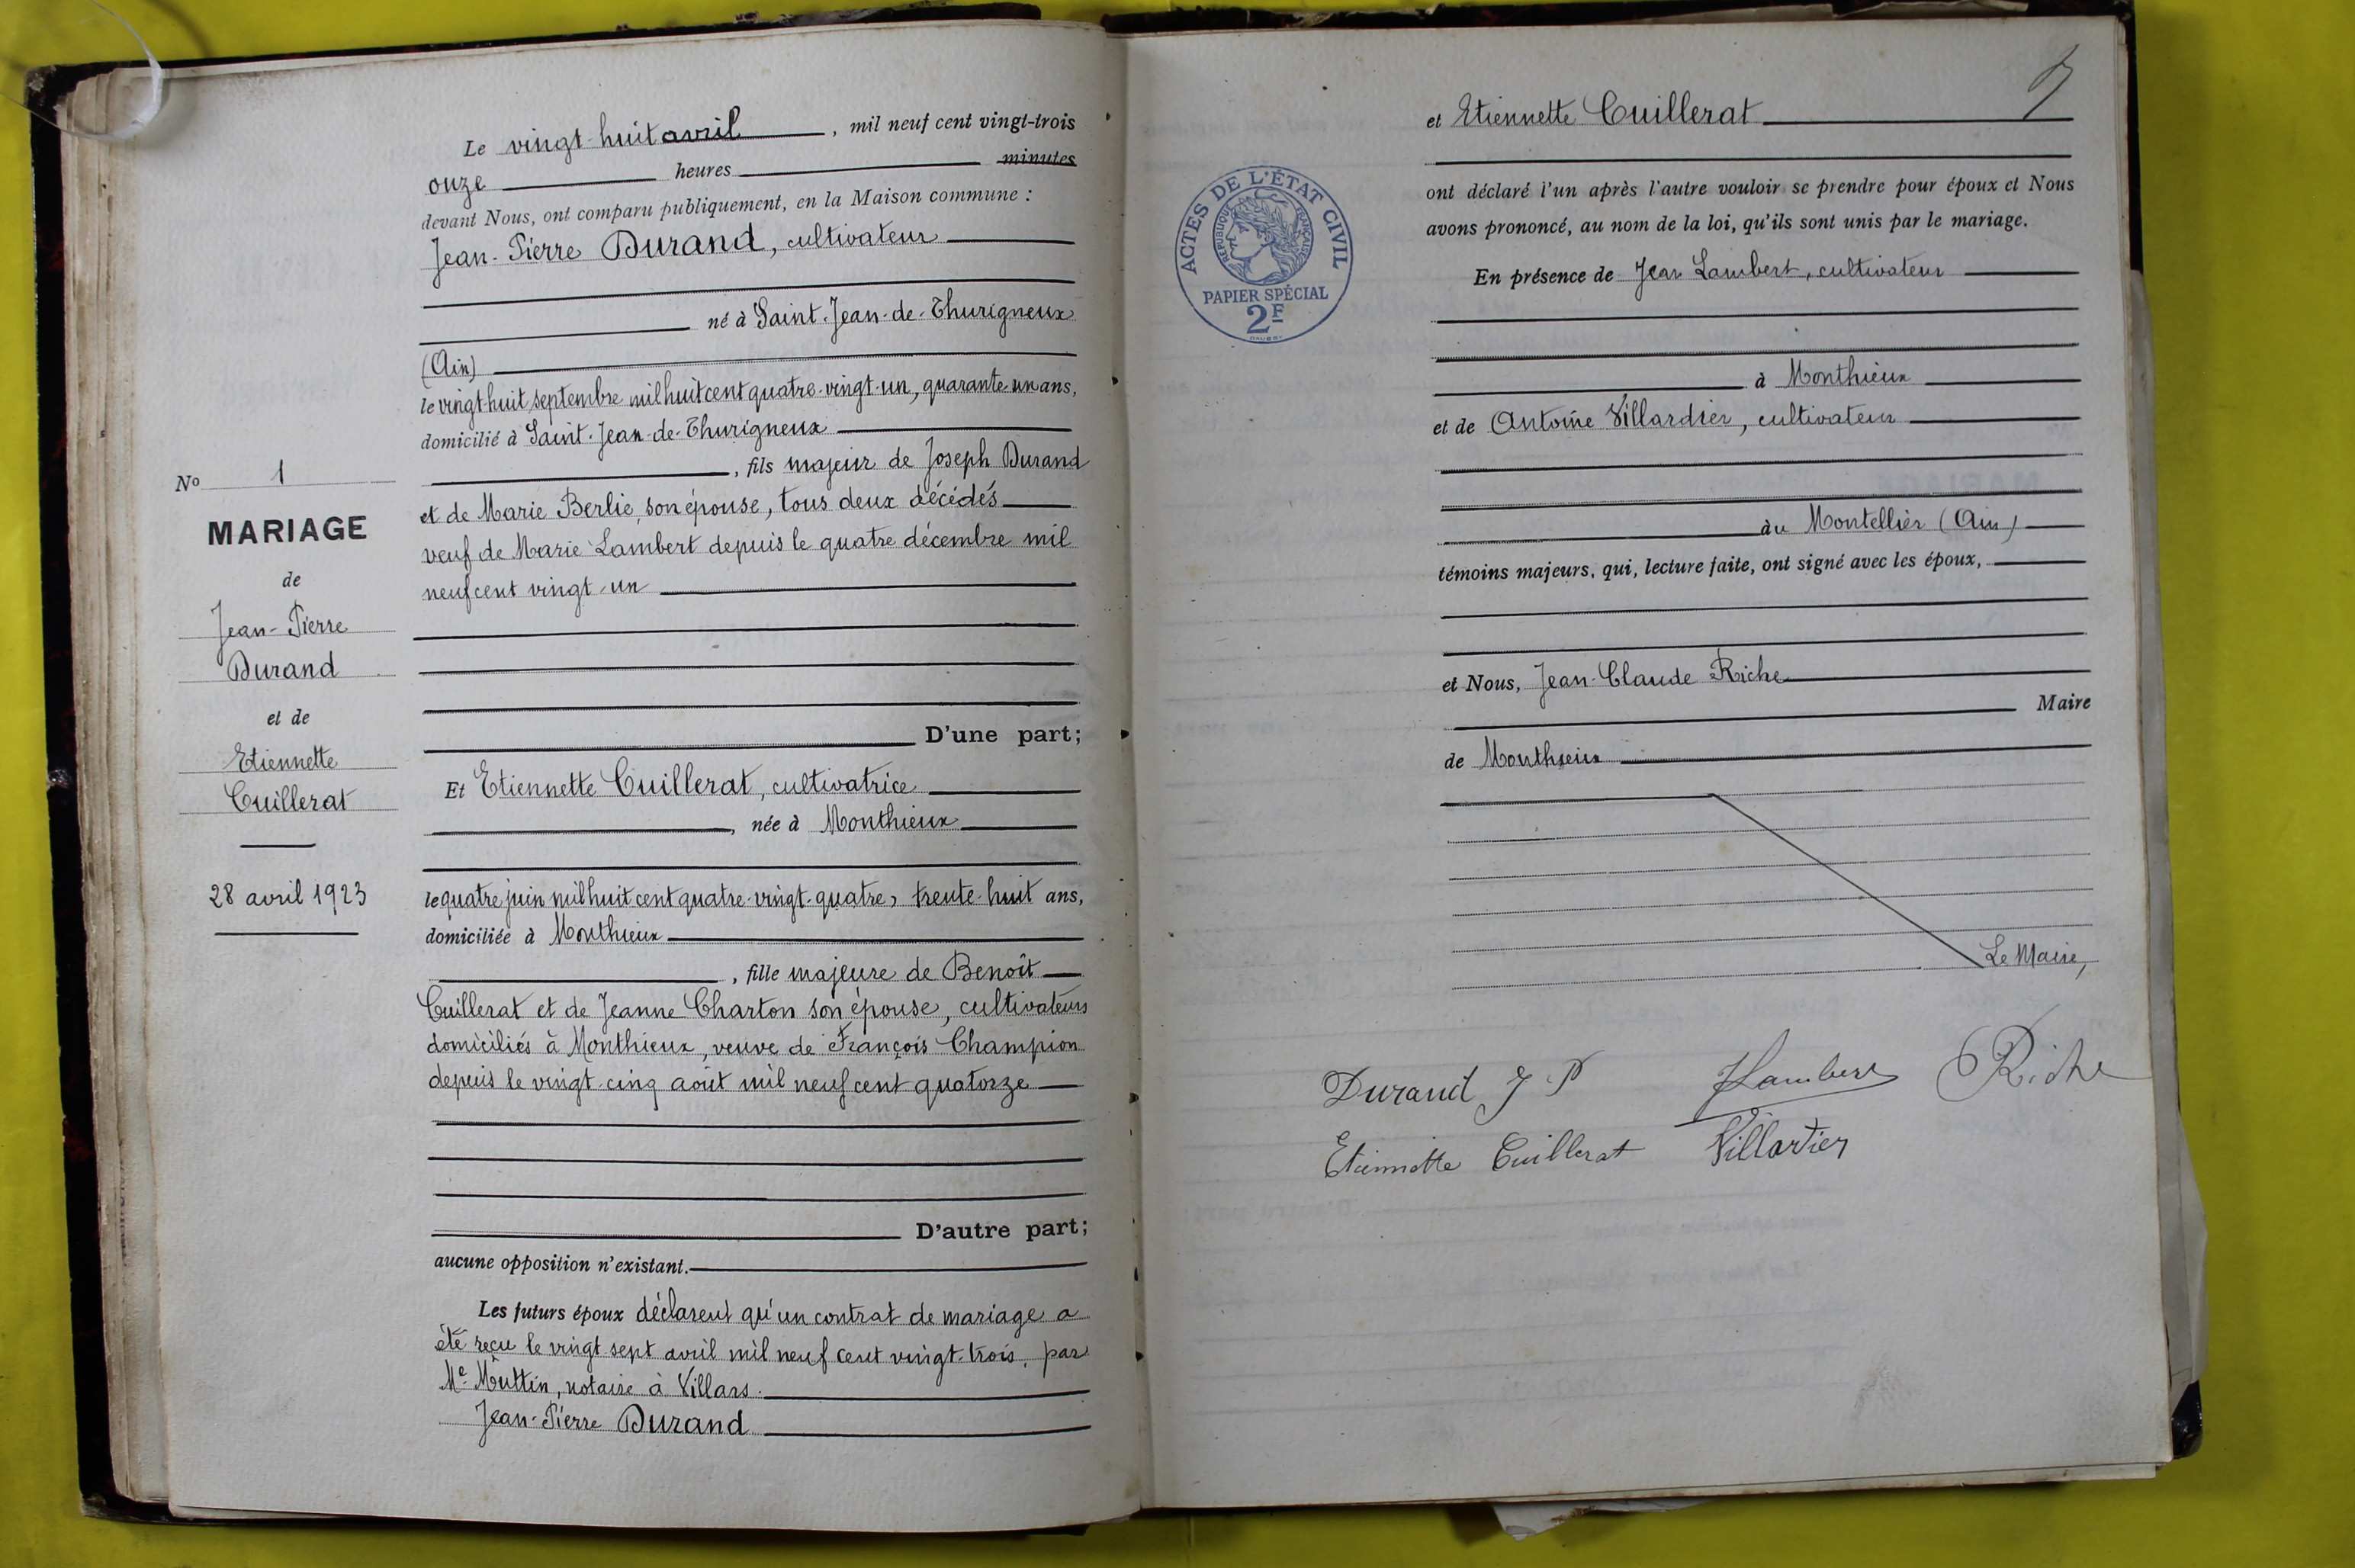 Le vingt-huit avril, mil neuf cent vingt-trois
onze heures minutes
devant Nous, ont comparu publiquement, en la Maison commune :
Jean-Pierre Durand, cultivateur
né à Saint-Jean-de-Thurigneux
(Ain)
le vingt-huit septembre mil huit cent quatre-vingt-un, quarante-un ans,
domicilié à Saint-Jean-de-Thurigneux
, fils majeur de Joseph Durand
et de Marie Berlie, son épouse, tous deux décédés
veuf de Marie Lambert depuis le quatre décembre mil
neuf cent vingt-un
D'une part;
Et Etiennette Cuillerat, cultivatrice
, née à Monthieux
le quatre juin mil huit cent quatre-vingt-quatre, trente-huit ans,
domiciliée à Monthieux
, fille majeure de Benoît
Cuillerat et de Jeanne Charton son épouse, cultivateurs
domiciliés à Monthieux, veuve de François Champion
depuis le vingt-cinq août mil neuf cent quatorze
D'autre part;
aucune opposition n'existant.
Les futurs époux déclarent qu'un contrat de mariage a
été reçu le vingt-sept avril mil neuf cent vingt-trois, par
Me Muttin, notaire à Villars.
Jean-Pierre Durand
No 1
MARIAGE
de
Jean-Pierre
Durand
et de
Etiennette
Cuillerat
28 avril 1923
et Etiennette Cuillerat
ont déclaré l'un après l'autre vouloir se prendre pour époux et Nous
avons prononcé, au nom de la loi, qu'ils sont unis par le mariage.
En présence de Jean Lambert, cultivateur
à Monthieux
et de Antoine Villardier, cultivateur
au Montellier (Ain)
témoins majeurs, qui, lecture faite, ont signé avec les époux,
et Nous, Jean-Claude Riche
Maire
de Monthieux
Le Maire,
Durand J P
JLambert
Riche
Etiennette Cuillerat
Villardier
ACTES DE L'ÉTAT CIVIL
RÉPUBLIQUE FRANÇAISE
PAPIER SPÉCIAL
2F